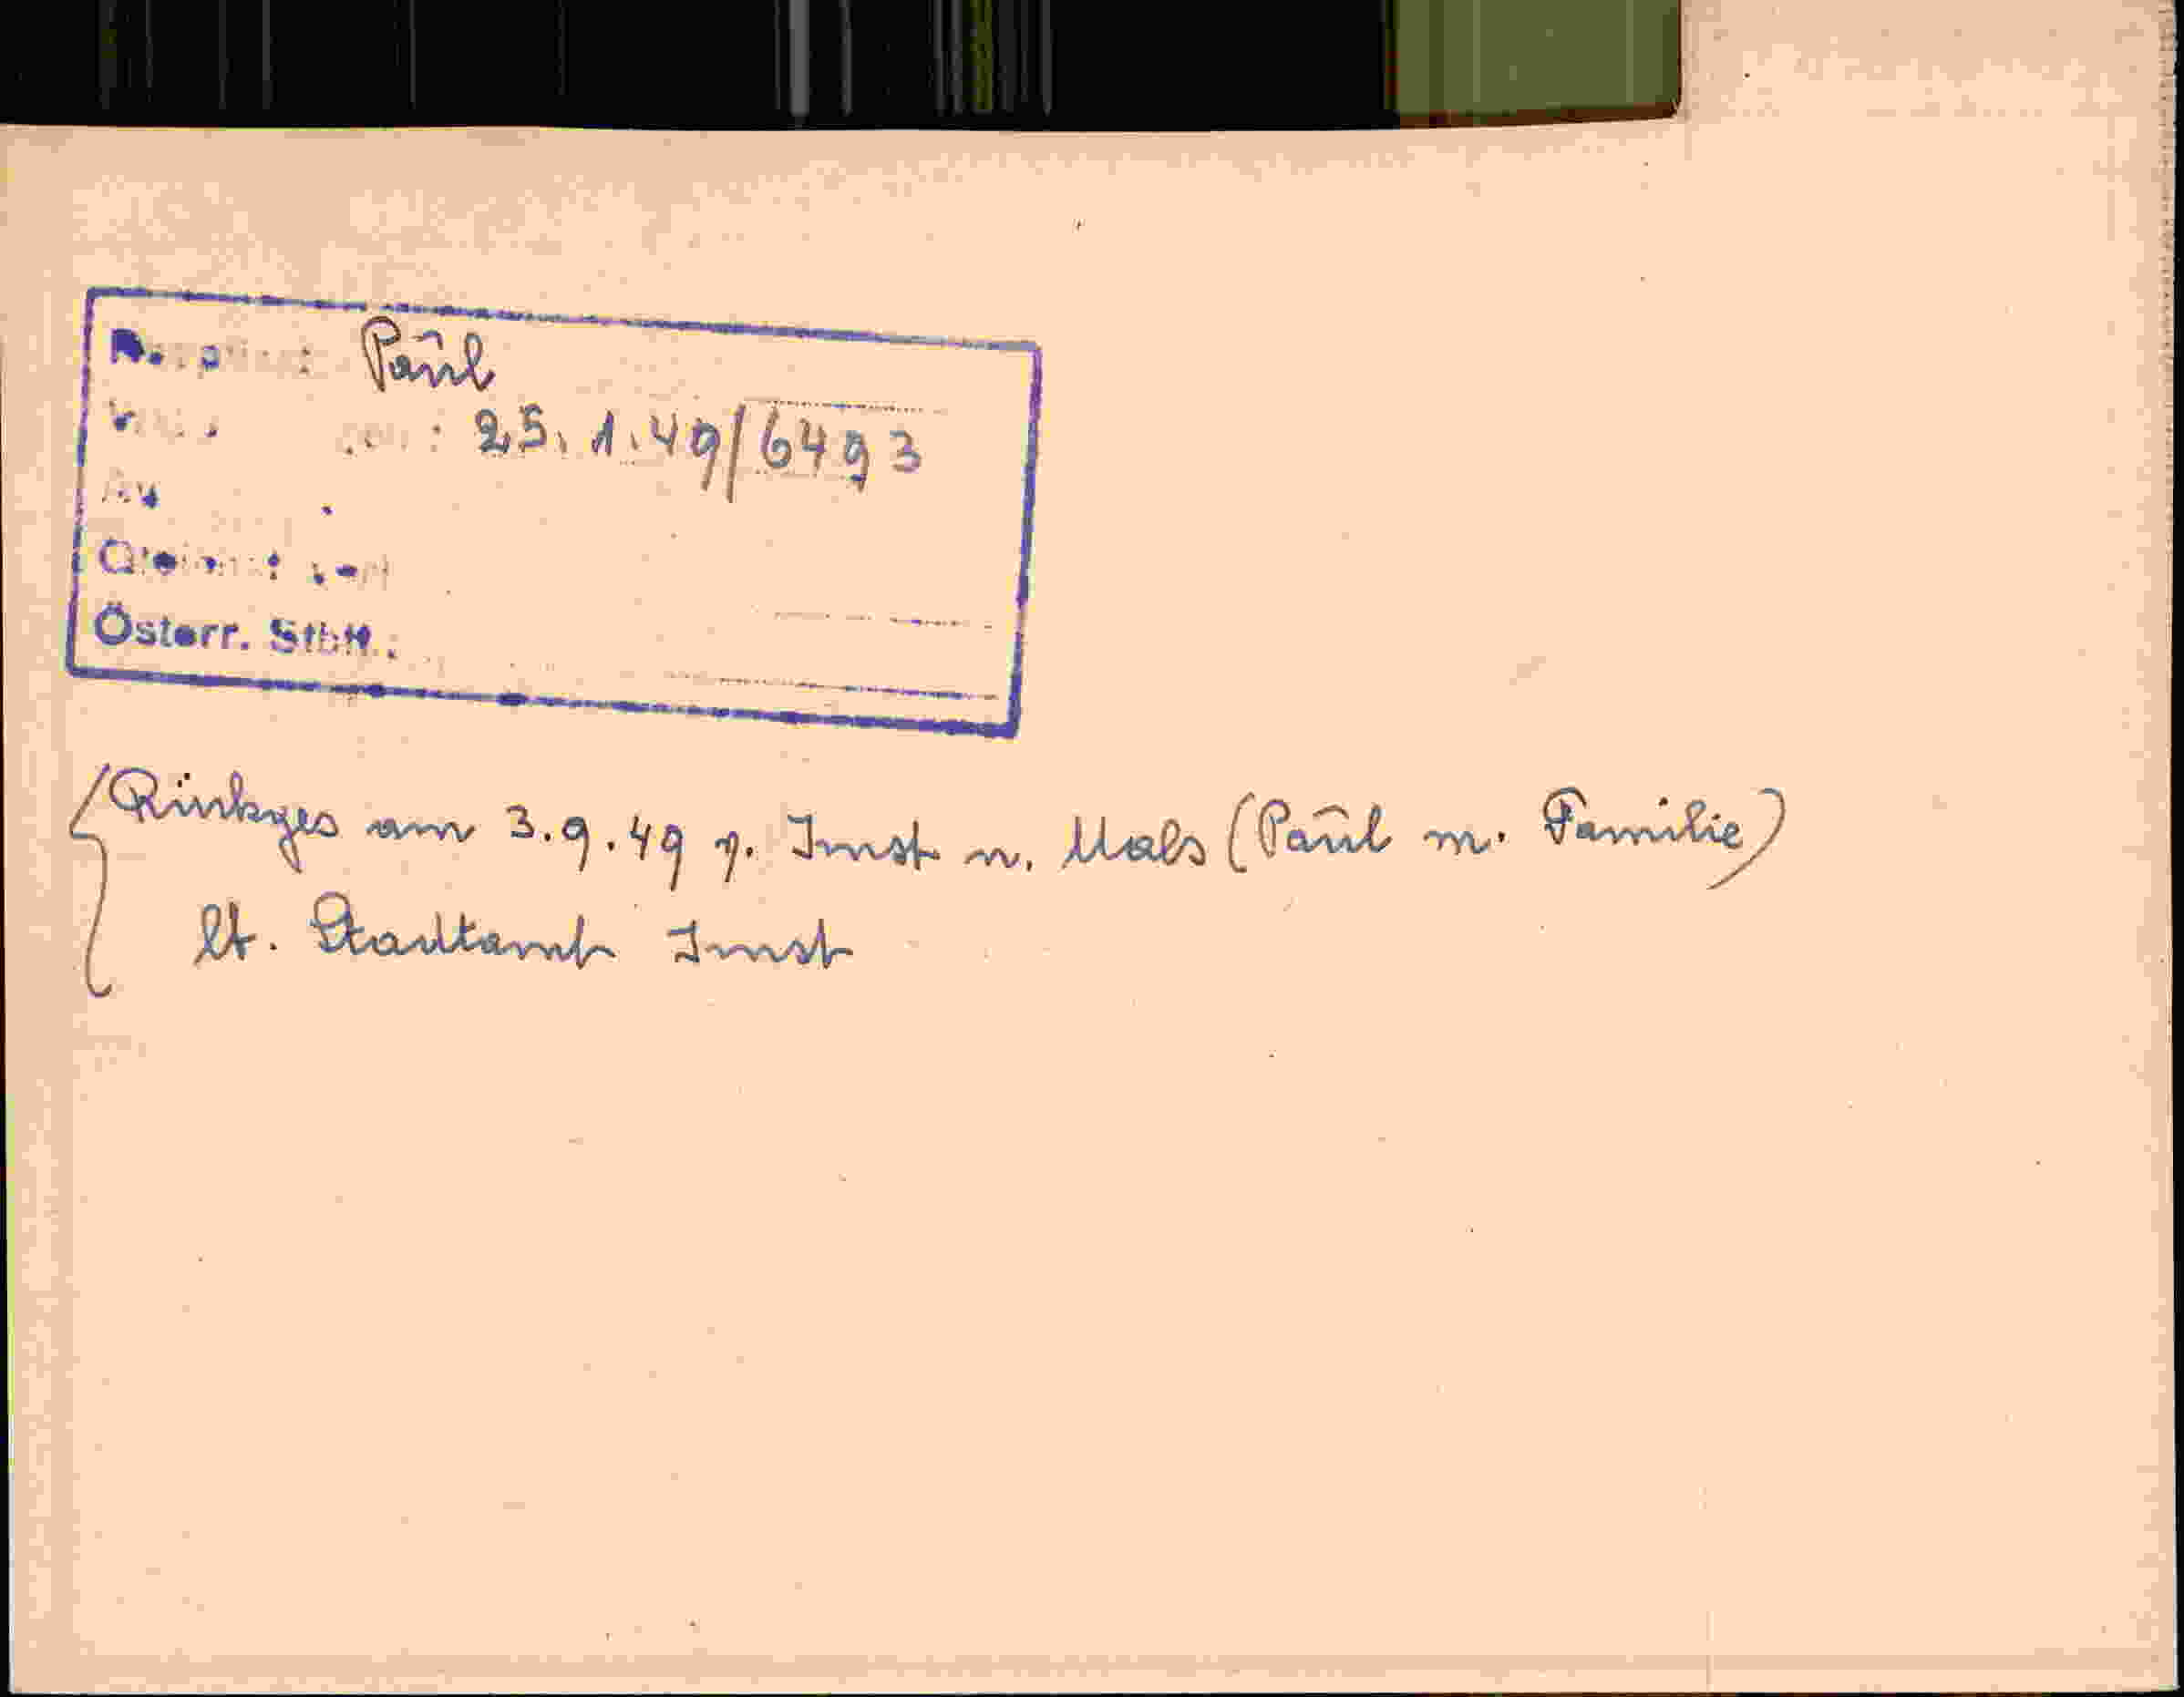 Paul
25.1.49/6493
Österr. Stbft.
Rückges am 3.9.49 v. Imst n. Mals (Paul m. Familie)
lt. Stadtamt Imst